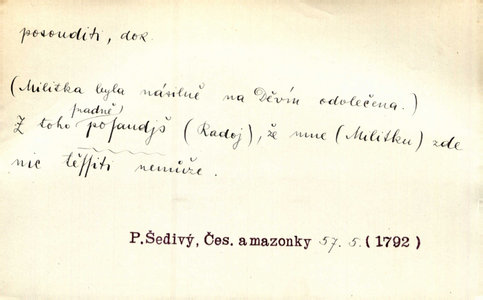 posouditi, dok.
(Militka byla násilně na Děvín odvlečena.)
snadně)
Z toho posaudjš (Radoj), že mne (Militku) zde
nic těssiti nemůže.
P. Šedivý, Čes. amazonky 57. 5. (1792)